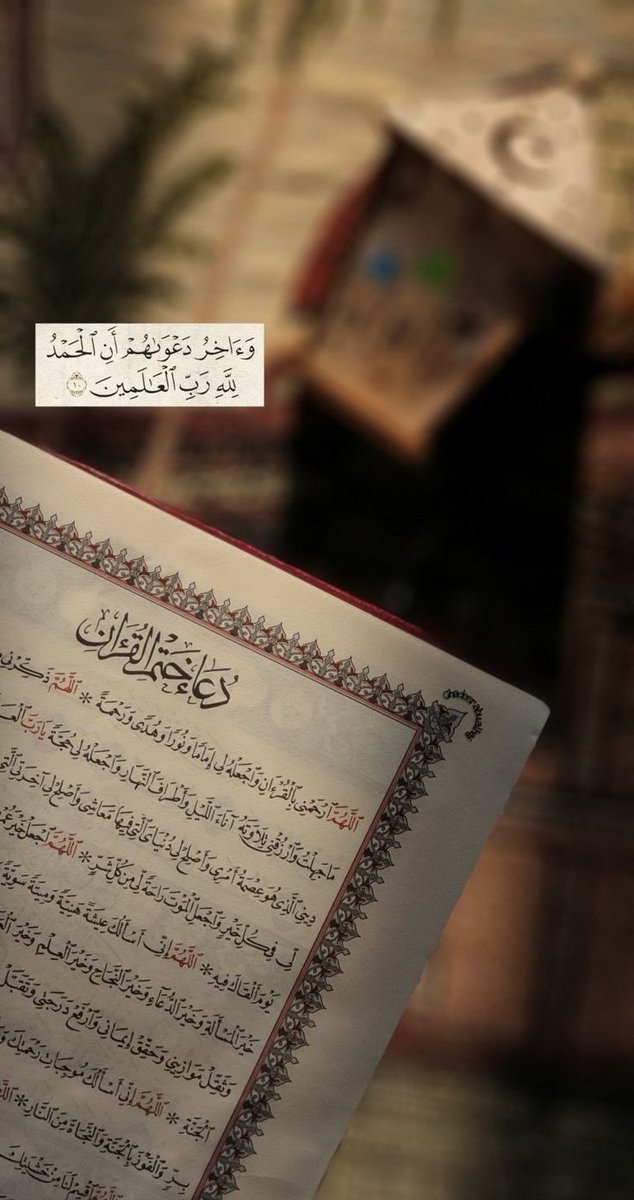 وَءَاخِرُ دَعْوَىٰهُمْ أَنِ ٱلْحَمْدُ
لِلَّهِ رَبِّ ٱلْعَٰلَمِينَ ١٠
دُعَاءُ خَتْمِ الْقُرْءَانِ
ٱللَّهُمَّ ٱرْحَمْنِي بِالْقُرْءَانِ وَٱجْعَلْهُ لِي إِمَامًا وَنُورًا وَهُدًى وَرَحْمَةً * ٱللَّهُمَّ ذَكِّرْنِي
مَا جَهِلْتُ وَٱرْزُقْنِي تِلَاوَتَهُ آنَاءَ ٱللَّيْلِ وَأَطْرَافَ ٱلنَّهَارِ وَٱجْعَلْهُ لِي حُجَّةً يَارَبَّ
دِينِي ٱلَّذِي هُوَ عِصْمَةُ أَمْرِي وَأَصْلِحْ لِي دُنْيَايَ ٱلَّتِي فِيهَا مَعَاشِي وَأَصْلِحْ لِي آخِرَتِي ٱلَّتِي
لِي فِي كُلِّ خَيْرٍ وَٱجْعَلِ ٱلْمَوْتَ رَاحَةً لِي مِنْ كُلِّ شَرٍّ * ٱللَّهُمَّ ٱجْعَلْ خَيْرَ
يَوْمَ أَلْقَاكَ فِيهِ * ٱللَّهُمَّ إِنِّي أَسْأَلُكَ عِيشَةً هَنِيَّةً وَمِيتَةً سَوِيَّةً
خَيْرَ ٱلْمَسْأَلَةِ وَخَيْرَ ٱلدُّعَاءِ وَخَيْرَ ٱلنَّجَاحِ وَخَيْرَ ٱلْعِلْمِ وَخَيْرَ
وَثَقِّلْ مَوَازِينِي وَحَقِّقْ إِيمَانِي وَٱرْفَعْ دَرَجَتِي وَتَقَبَّلْ
ٱلْجَنَّةِ * ٱللَّهُمَّ إِنِّي أَسْأَلُكَ مُوجِبَاتِ رَحْمَتِكَ
بِرٍّ وَٱلْفَوْزَ بِٱلْجَنَّةِ وَٱلنَّجَاةَ مِنَ ٱلنَّارِ *
ٱللَّهُمَّ ٱقْسِمْ لَنَا مِنْ خَشْيَتِكَ